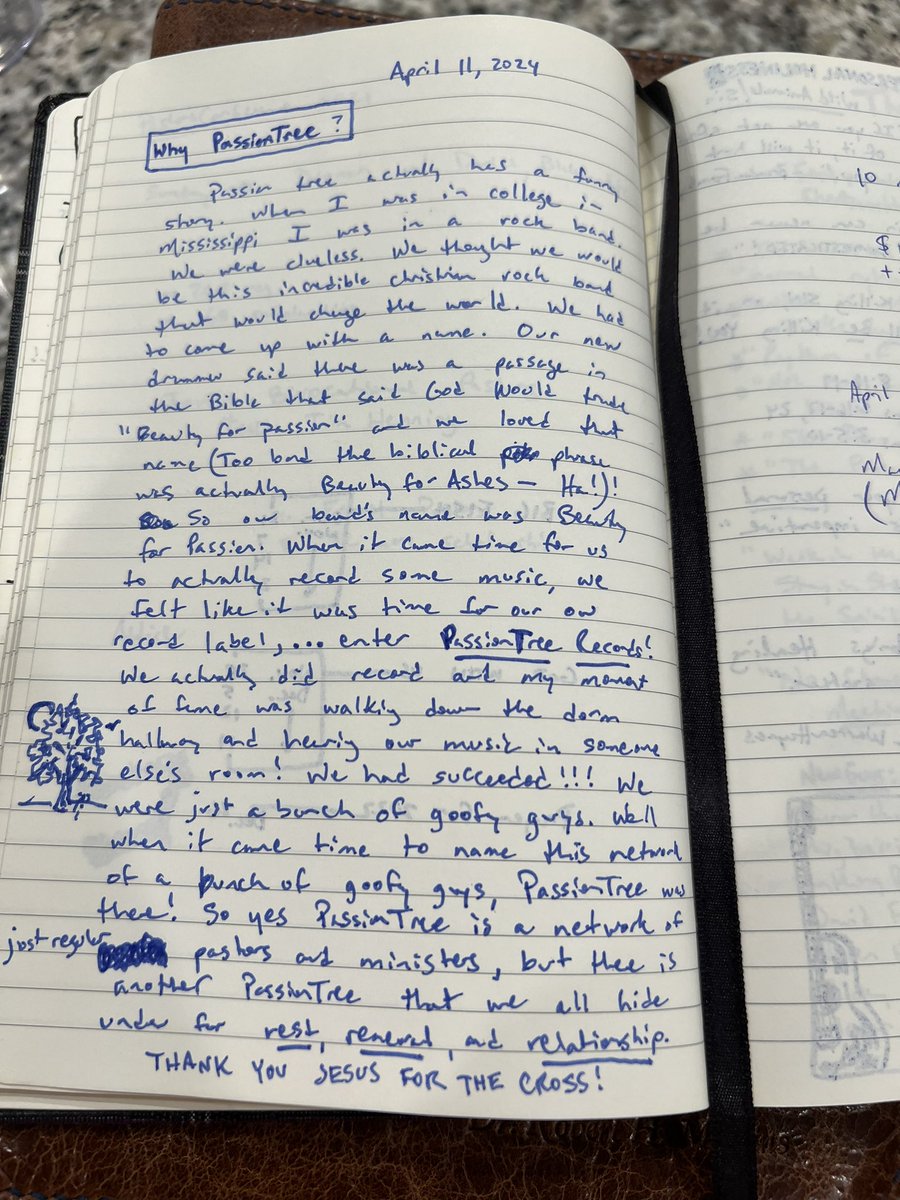 April 11, 2024
Why PassionTree?
Passion tree actually has a funny
story. When I was in college in
Mississippi I was in a rock band.
We were clueless. We thought we would
be this incredible christian rock band
that would change the world. We had
to come up with a name. Our new
drummer said there was a passage in
the Bible that said God would trade
"Beauty for passion" and we loved that
name (Too bad the biblical phrase
was actually Beauty for Ashes — Ha!)!
So our band's name was Beauty
for Passion. When it came time for us
to actually record some music, we
felt like it was time for our own
record label, ... enter PassionTree Records!
We actually did record and my moment
of fame was walking down the dorm
hallway and hearing our music in someone
else's room! We had succeeded!!! We
were just a bunch of goofy guys. Well
when it came time to name this network
of a bunch of goofy guys, PassionTree was
there! So yes PassionTree is a network of
just regular pastors and ministers, but there is
another PassionTree that we all hide
under for rest, renewal, and relationship.
THANK YOU JESUS FOR THE CROSS!
10
April